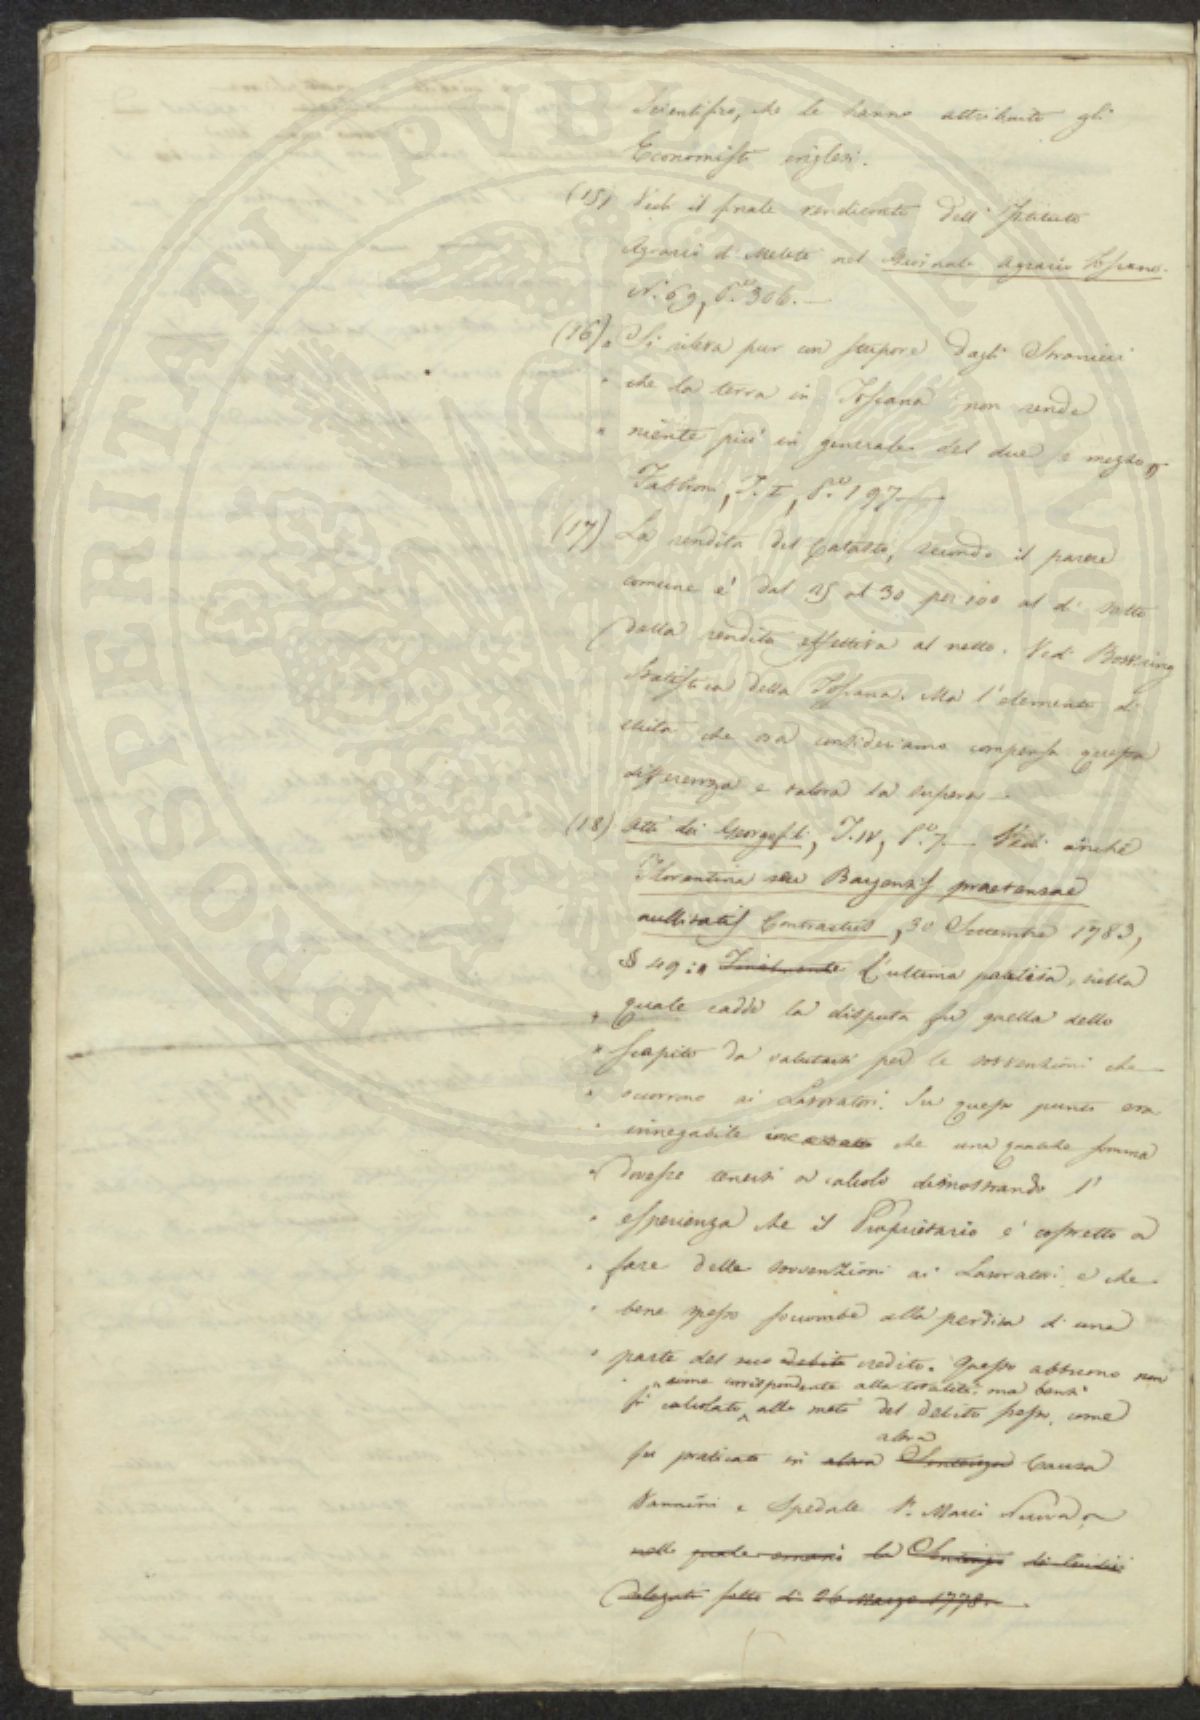 scientifico, che le hanno attribuito gli
Economisti inglesi.
(15) Vedi il finale rendiconto dell'Istituto
Agrario di Meleto nel Giornale Agrario Toscano.
N. 69, P.e 306.—
(16) „ Si rileva pur con stupore dagli Stranieri
„ che la terra in Toscana non rende
„ niente più in generale del due e mezzo „
Fabbroni, T. I, P.a 197.—
(17) La rendita del Catasto, secondo il parere
comune è dal 25 al 30 per 100 al di sotto
della rendita effettiva al netto. Vedi Bowring
Statistica della Toscana. Ma l'elemento di
che ora consideriamo compensa questa
differenza e talora la supera.—
(18) Atti dei Georgofili, T. IV, P.a 7.— Vedi anche
Florentina seu Bargensis praetensae
nullitatis Contractus, 30 Settembre 1783,
§ 49: „ Finalmente l'ultima partita, sulla
„ quale cadde la disputa fu quella dello
„ scapito da valutarsi per le sovvenzioni che
„ occorrono ai Lavoratori. Su questo punto era
„ innegabile che una qualche somma
„ dovesse tenersi a calcolo dimostrando l'
„ esperienza che il Proprietario è costretto a
„ fare delle sovvenzioni ai Lavoratori e che
„ bene spesso soccombe alla perdita di una
„ parte del suo debito credito. Questo abbuono non
„ come corrispondente alla totalità, ma bensì
fu calcolato alla metà del debito stesso, come
altra
fu praticato in altra Sentenza Causa
Vannini e Spedale S. Maria Nuova „
nella quale emanò la Sentenza di Giudici
Delegati sotto dì 26 Marzo 1778.—